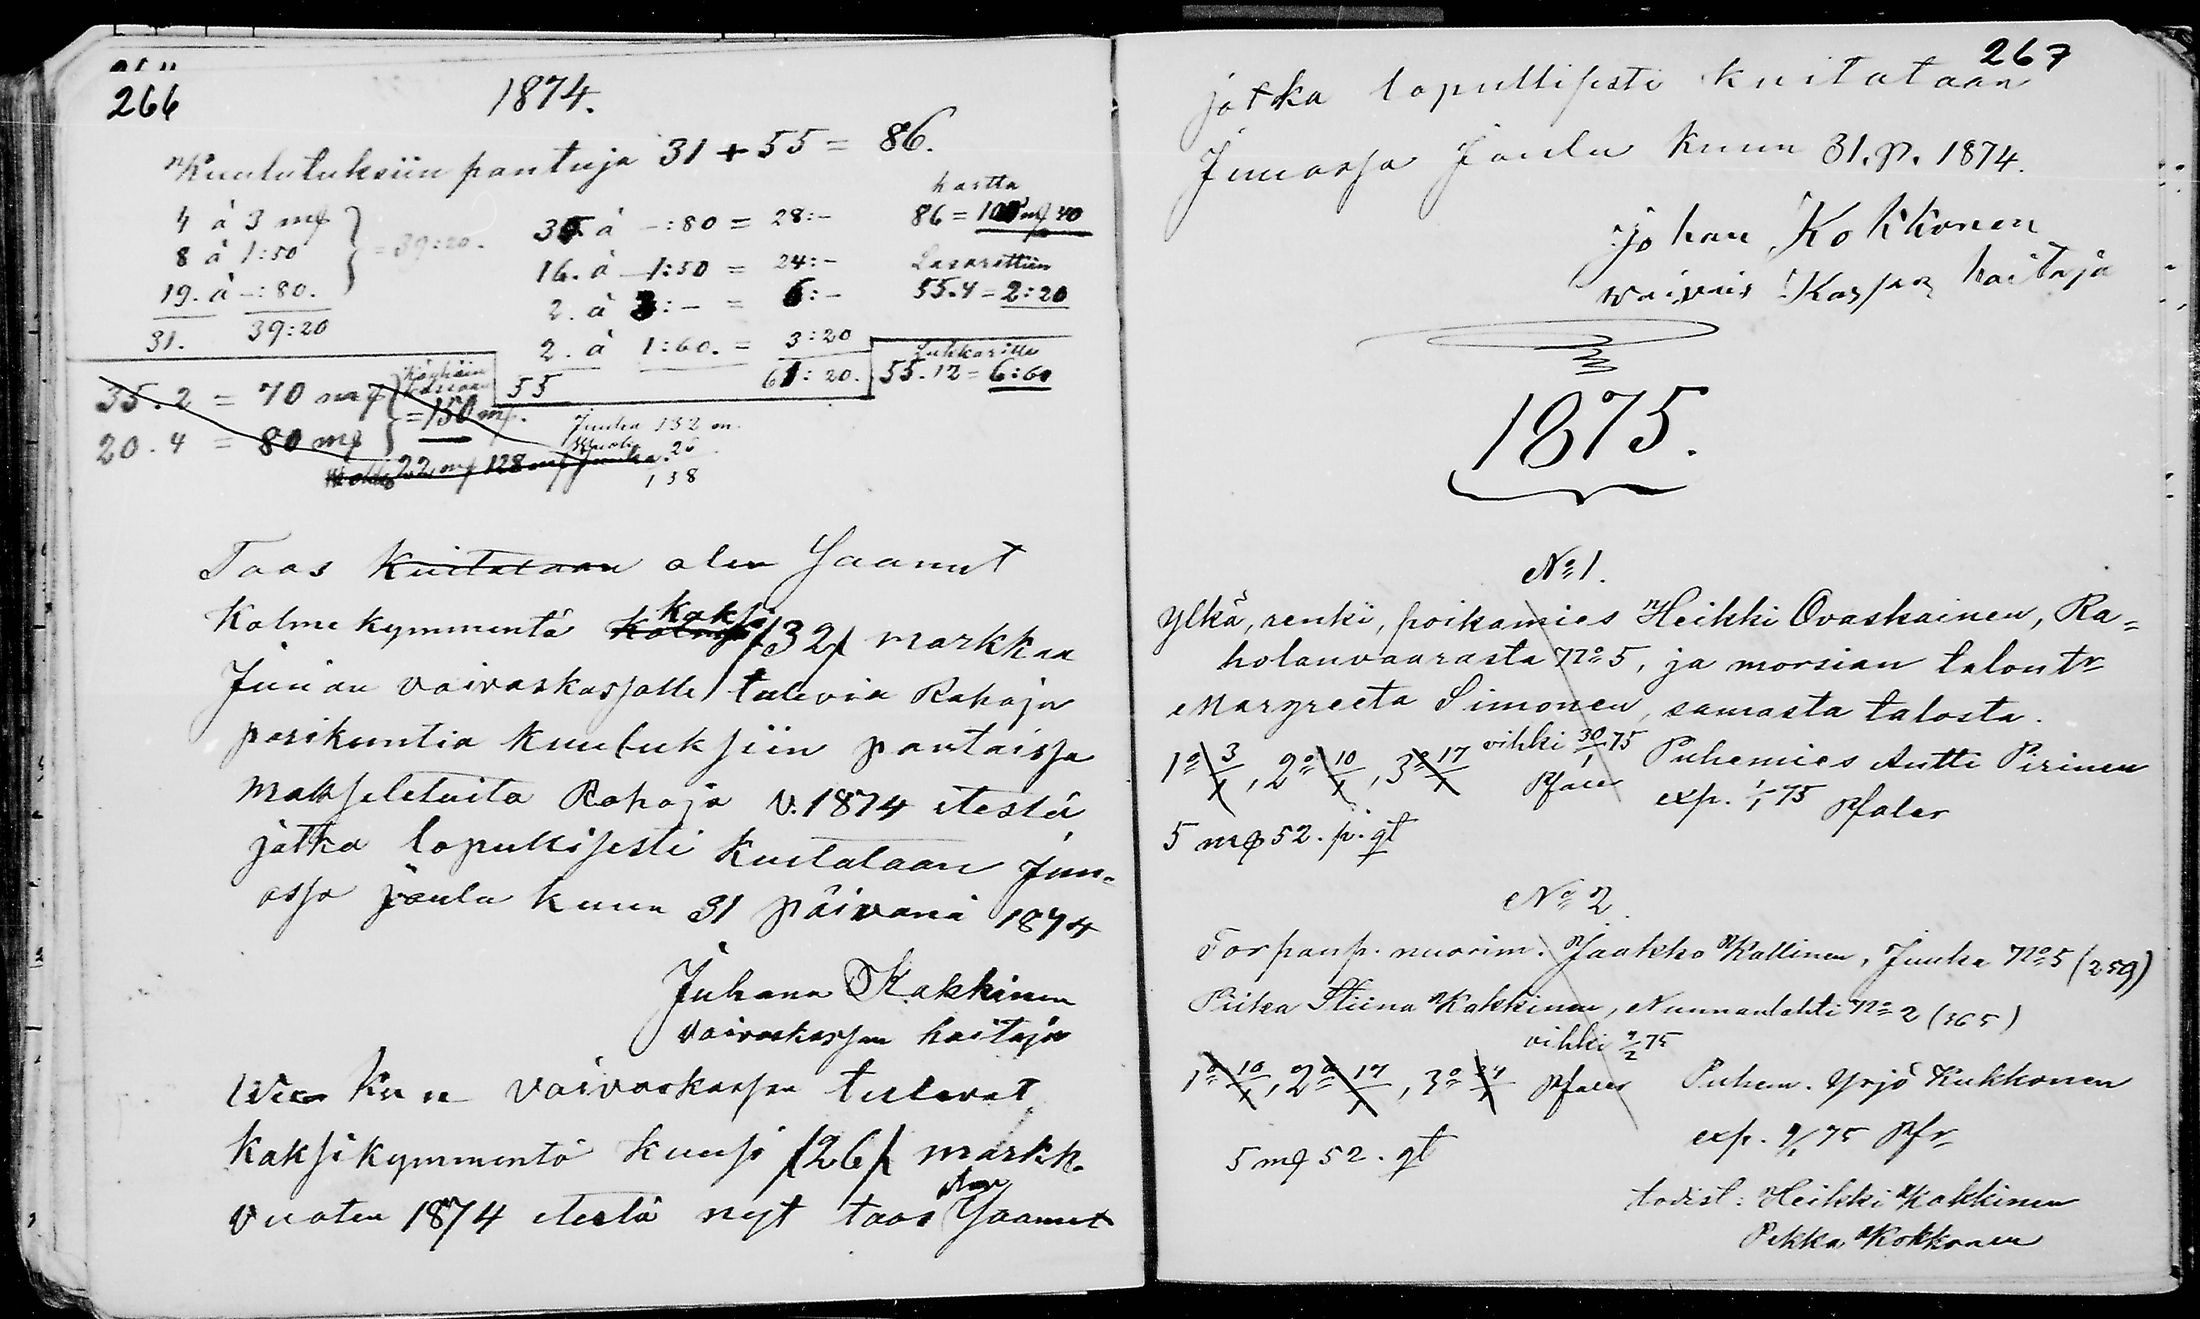 266
1874.
Kuulutuksiin pantuja 31 + 55 = 86.
4 à 3 mk
8 à 1:50
19. à -:80.
31. 39:20
= 39:20.
35. à -:80 = 28:-
16. à 1:50 = 24:-
2. à 3:- = 6:-
2. à 1:60. = 3:20
55 61:20.
kartta
86 = 103 mk 20
Lasarettiin
55.4 = 2:20
Lukkarille
55.12 = 6:60
35.2 = 70 mk
20.4 = 80 mk
= 150 mk.
Juuka 132 m.
26
22 mk 128 mk Juuka.
158
Taas Kuitataan olen Saanut
Kolmekymmentä Kolme kaksi /32/ markkaa
Juuan vaivaskassalle tulevia Rahoja
parikuntia kuulutuksiin pantaissa
Makseletuita Rahoja v. 1874 etestä
jotka lopullisesti kuitataan Juu-
assa joulu kuun 31 päivänä 1874
Juhana Kakkinen
vaivaskassan hoitaja
vaivaskassan tulevat
kaksikymmentä kuusi /26/ markk.
vuoten 1874 etestä nyt taas olen Saanut
267
jotka lopullisesti kuitataan
Juuassa Joulu kuun 31. p. 1874.
Johan Kokkonen
vaivais Kassan hoitaja
1875.
No 1.
Ylkä, renki, poikamies Heikki Ovaskainen, Ra=
holanvaarasta No 5, ja morsian talontr
Margreeta Simonen, samasta talosta.
1o 3/1, 2o 10/1, 3o 17/1 vihki 30/1 75 Puhemies Antti Pirinen
Pfaler exp. 1/1 75 Pfaler
5 mk 52. p. qt
No 2.
Torpanp. nuorim. Jaakko Kallinen, Juuka No 5 (259)
Piika Stiina Kakkinen, Nunnanlahti No 2 (365)
vihki 7/2 75
1o 10/1, 2o 17/1, 3o 24/1 Pfaler Puhem. Yrjö Kukkonen
exp. 9/1 75 Pfr
5 mk 52. qt
todist: Heikki Kakkinen
Pekka Kokkonen